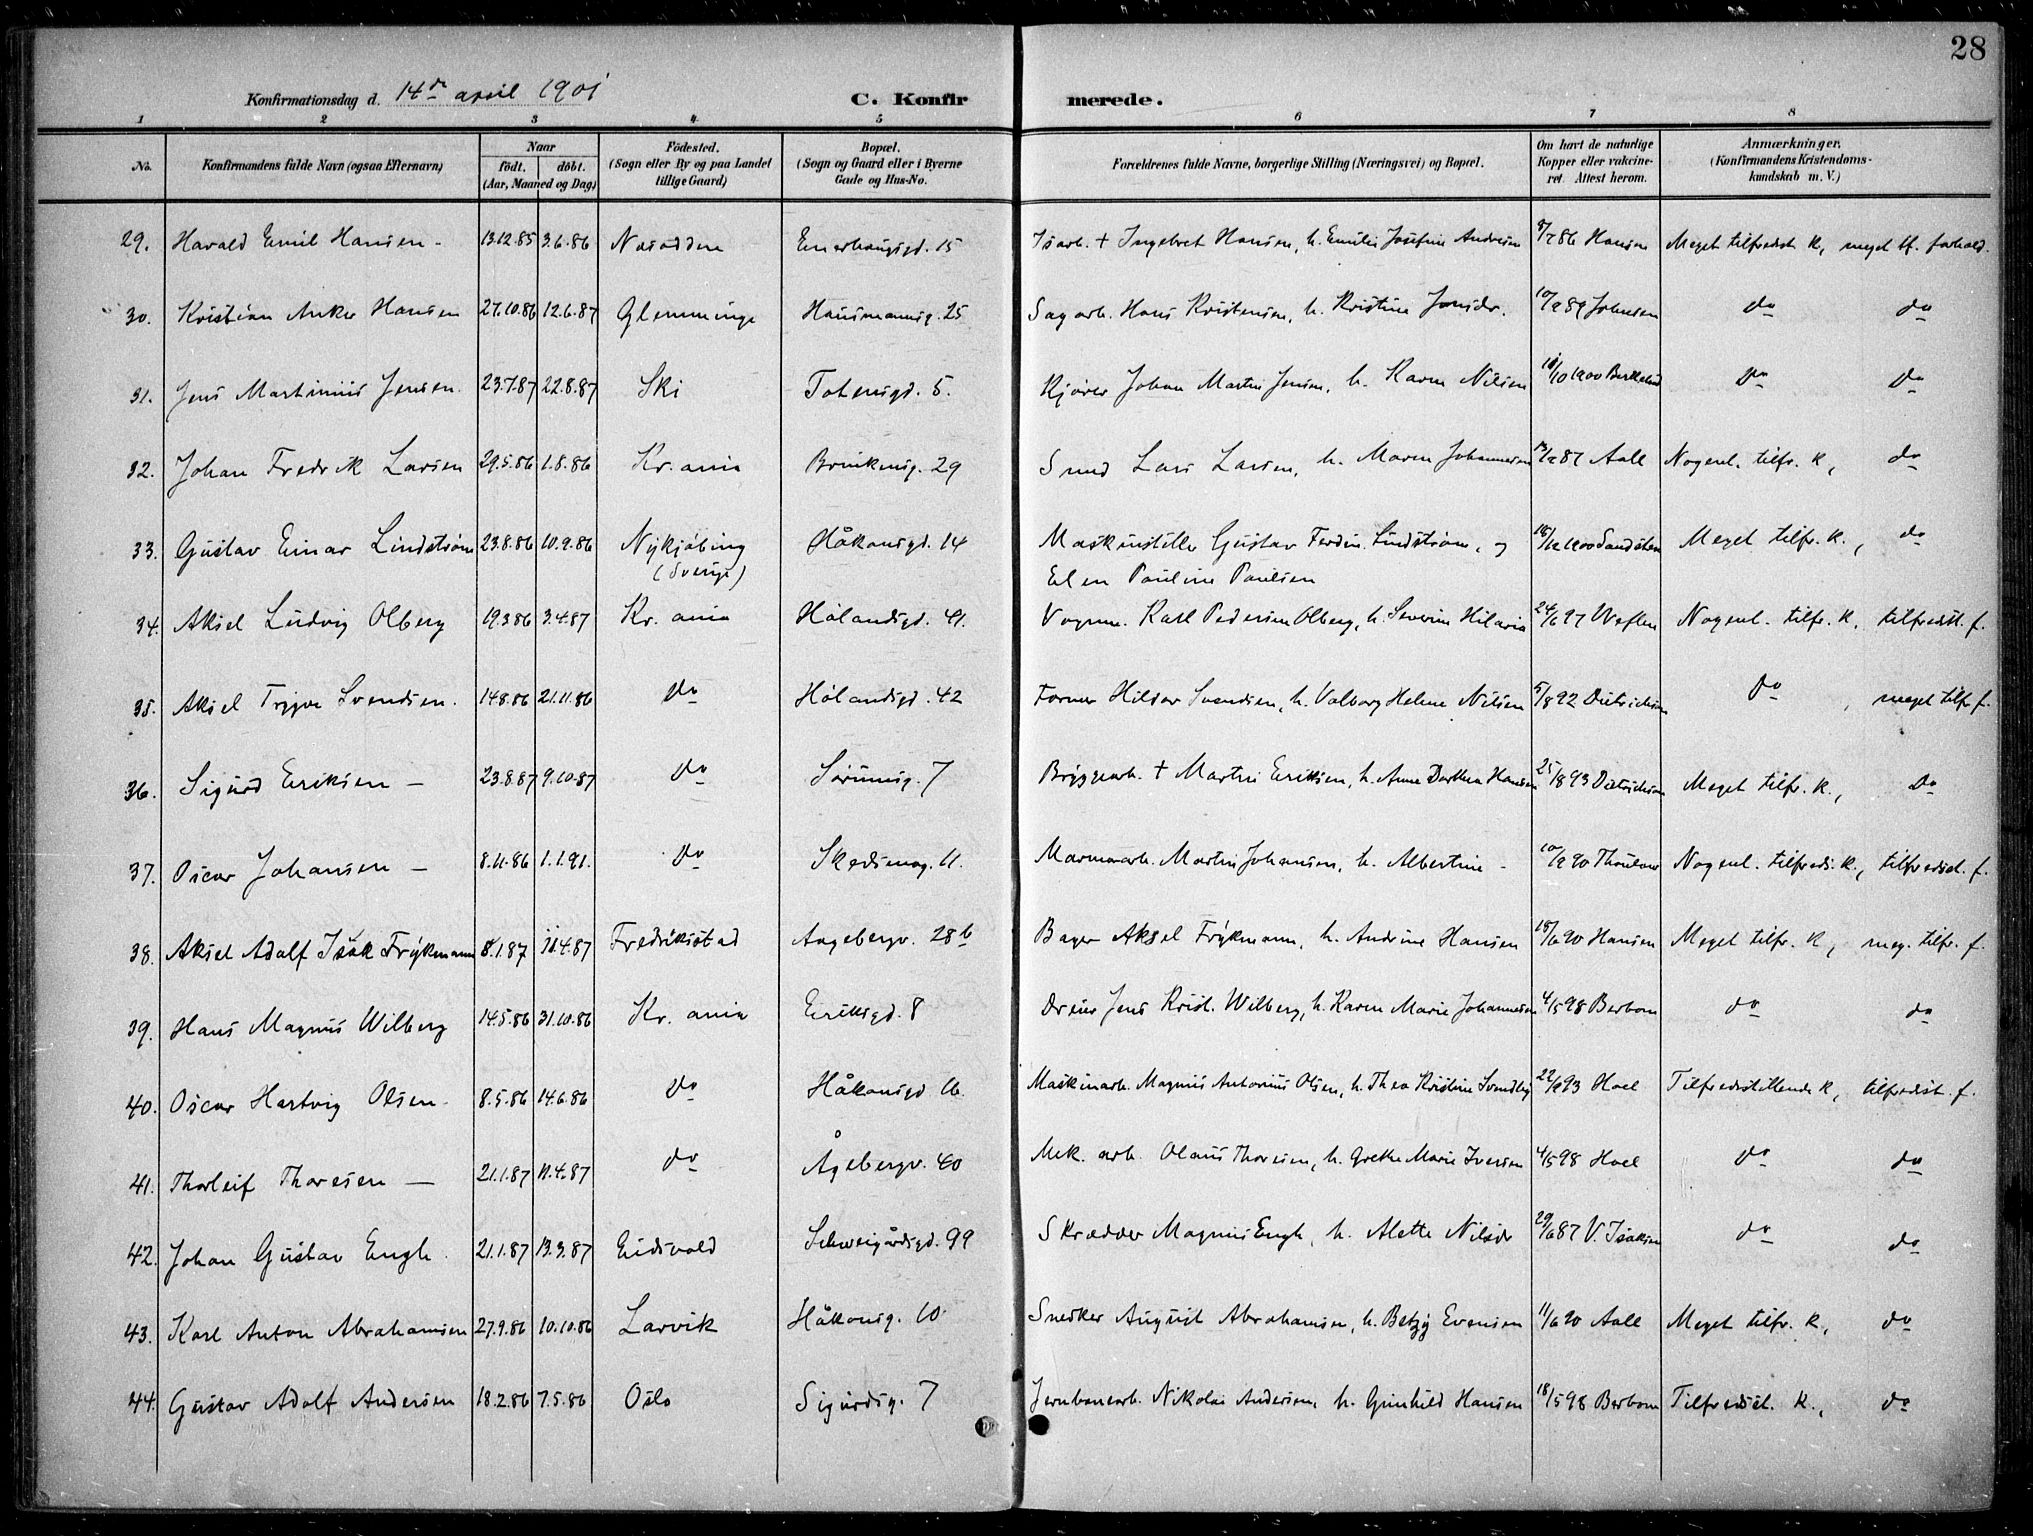 28
Konfirmationsdag d. 14de april 1901 C. Konfirmerede.
1 2 3 4 5 6 7 8
No. Konfirmandens fulde Navn (ogsaa Efternavn) Naar født. døbt. (Aar, Maaned og Dag) Fødested. (Sogn eller By og paa Landet tillige Gaard) Bopæl. (Sogn og Gaard eller i Byerne Gade og Hus-No. Forældrenes fulde Navne, borgerlige Stilling (Næringsvei) og Bopæl. Om havt de naturlige Kopper eller vakcineret. Attest herom. Anmærkninger. (Konfirmandens Kristendomskundskab m. V.)
29. Harald Emil Hansen - 13.12.85 3.6.86 Nesodden Enerhaugsgd. 15 Isarb. + Ingebret Hansen, h. Emilie Josefine Andresen 8/7 86 Hansen Meget tilfredst. k, meget tf. forhold.
30. Kristian Anker Hansen 27.10.86 12.6.87 Glemminge Hausmannsg. 25 Sagarb. Hans Kristensen, h. Kristine Jonsdr. 10/9 89 Johnsen do do
31. Jens Martinius Jensen. 23.7.87 22.8.87 Ski Totensgd. 5. Kjører Johan Martin Jensen, h. Karen Nilsen 11/10 1900 do do
32. Johan Fredrik Larsen 29.5.86 1.8.86 Kr.ania Brinkensg. 29 Smed Lars Larsen, h. Maren Johannesen 87 Aall Nogenl. tilfr. k, do
33. Gustav Einar Lindstrøm 23.8.86 10.9.86 Nykjöbing (Sverige) Håkonsgd. 14 Maskinstiller Gustav Ferdin. Lindstrøm, og Elen Pauline Paulsen 1900 Sandsten Meget tilfr. k., do
34. Aksel Ludvig Olberg 19.3.86 3.4.87 Kr.ania Hölandsgd. 41. Vognm. Karl Pedersen Olberg, h. Severine Hilaria 24/6 97 Weflen Nogenl. tilfr. k, tilfredst. f.
35. Aksel Trygve Svendsen. 14.8.86 21.11.86 do Hölandsgd. 42 Former Hilsar Svendsen, h. Valborg Helene Nilsen 5/8 92 Dietrichson do, meget tilfr f.
36. Sigurd Eriksen - 23.8.87 9.10.87 do Sörumsg. 7 Bryggearb. + Martin Eriksen, h. Anne Dorthea Hansen 25/8 93 Dietrichson Meget tilfr. k., do
37. Oscar Johansen - 8.11.86 1.1.91. do Skedsmog. 11. Marmorarb. Martin Johansen, h. Albertine - 10/9 90 Thaulow Nogenl. tilfreds. k., tilfredsst. f.
38. Aksel Adolf Isak Frykmann 8.1.87 11.4.87 Fredrikstad Aagebergv. 28 b Bager Aksel Frykmann, h. Andrine Hansen 18/6 90 Hansen Meget tilfr. k, meg. tilfr. f.
39. Hans Magnus Wilberg 14.5.86 31.10.86 Kr.ania Eriksgd. 8 Dreier Jens Krist. Wilberg, h. Karen Marie Johannesen 4/5 98 Berbom do do
40. Oscar Hartvig Olsen. 8.5.86 14.6.86 do Håkonsgd 16. Maskinarb. Magnus Antonius Olsen, h. Thea Kristine Svendby 22/9 93 Hoel Tilfredsstillende k, tilfredst. f.
41. Thorleif Thoresen - 21.1.87 11.4.87 do Ågebergv. 40 Mek. arb. Olaus Thoresen, h. Grethe Marie Iversen 4/5 98 Hoel do do
42. Johan Gustav Engh. 21.1.87 13.3.87 Eidsvold Schweigårdsgd. 99 Skrædder Magnus Engh, h. Alette Nilsdr 29/6 87 V. Isaksen do do
43. Karl Anton Abrahamsen 27.9.86 10.10.86 Larvik Håkonsg. 10 Snedker August Abrahamsen, h. Betzy Evensen 11/6 90 Aall Meget tilfr. k, do
44. Gustav Adolf Andersen 18.2.86 7.5.86 Oslo Sigurdsg. 7 Jernbanearb. Nikolai Andersen, h. Gunhild Hansen 18/5 98 Berbom Tilfredsst. k., do